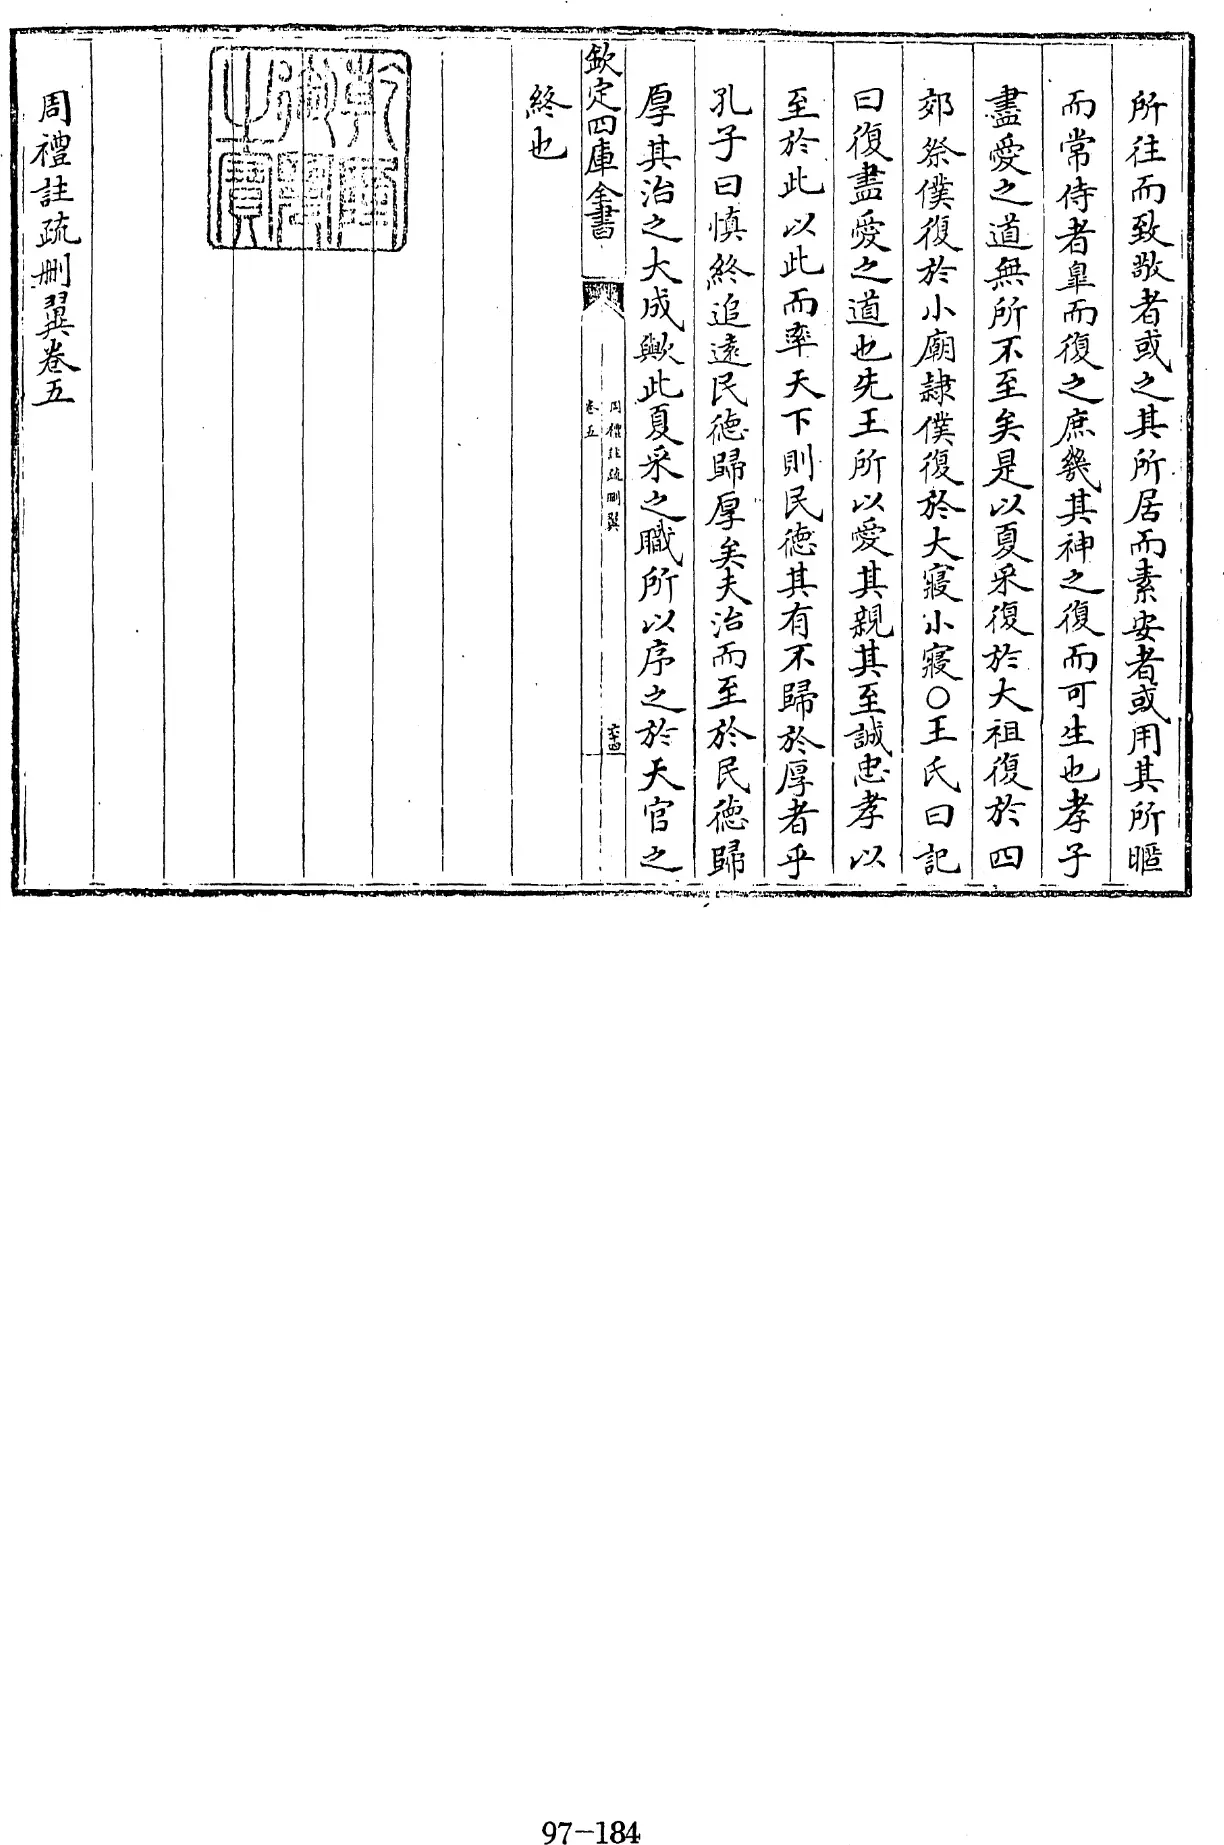 所往而致敬者或之其所居而素安者或用其所暱
而常侍者臯而復之庶幾其神之復而可生也孝子
盡愛之道無所不至矣是以夏采復於大祖復於四
郊祭僕復於小廟隷僕復於大寢小寢○王氏曰記
曰復盡愛之道也先王所以愛其親其至誠忠孝以
至於此以此而率天下則民徳其有不歸於厚者乎
孔子曰慎終追遠民徳歸厚矣夫治而至於民徳歸
厚其治之大成歟此夏采之職所以序之於天官之
欽定四庫全書
周禮註疏刪翼
卷五
六十四
終也
乾隆御覽之寶
周禮註疏刪翼卷五
97-184